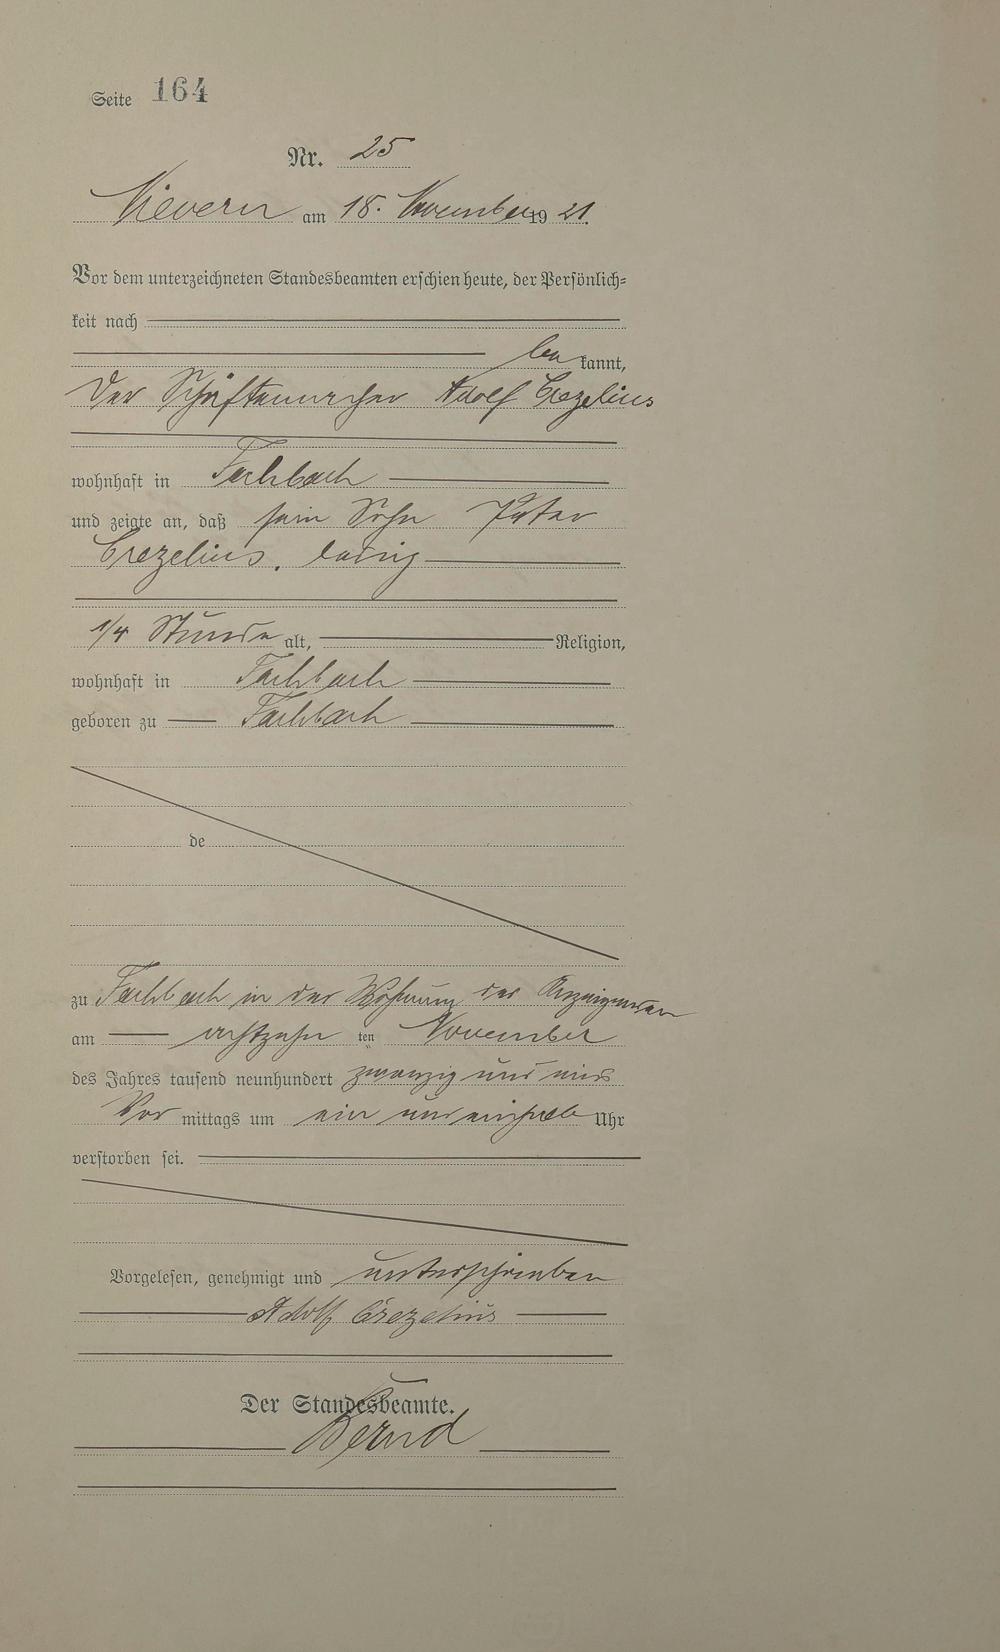 Seite 164
Nr. 25
Nievern am 18. November 1921.
Vor dem unterzeichneten Standesbeamten erschien heute, der Persönlich=
keit nach
be kannt,
der Schäftemacher Adolf Crezelius
wohnhaft in Fachbach
und zeigte an, daß sein Sohn Peter
Crezelius, ledig
1/4 Stunde alt, Religion,
wohnhaft in Fachbach
geboren zu Fachbach
de
zu Fachbach in der Wohnung des Anzeigenden
am achtzehn ten November
des Jahres tausend neunhundert zwanzig und eins
Vor mittags um ein und einhalb Uhr
verstorben sei.
Vorgelesen, genehmigt und unterschrieben
Adolf Crezelius
Der Standesbeamte.
Bernd